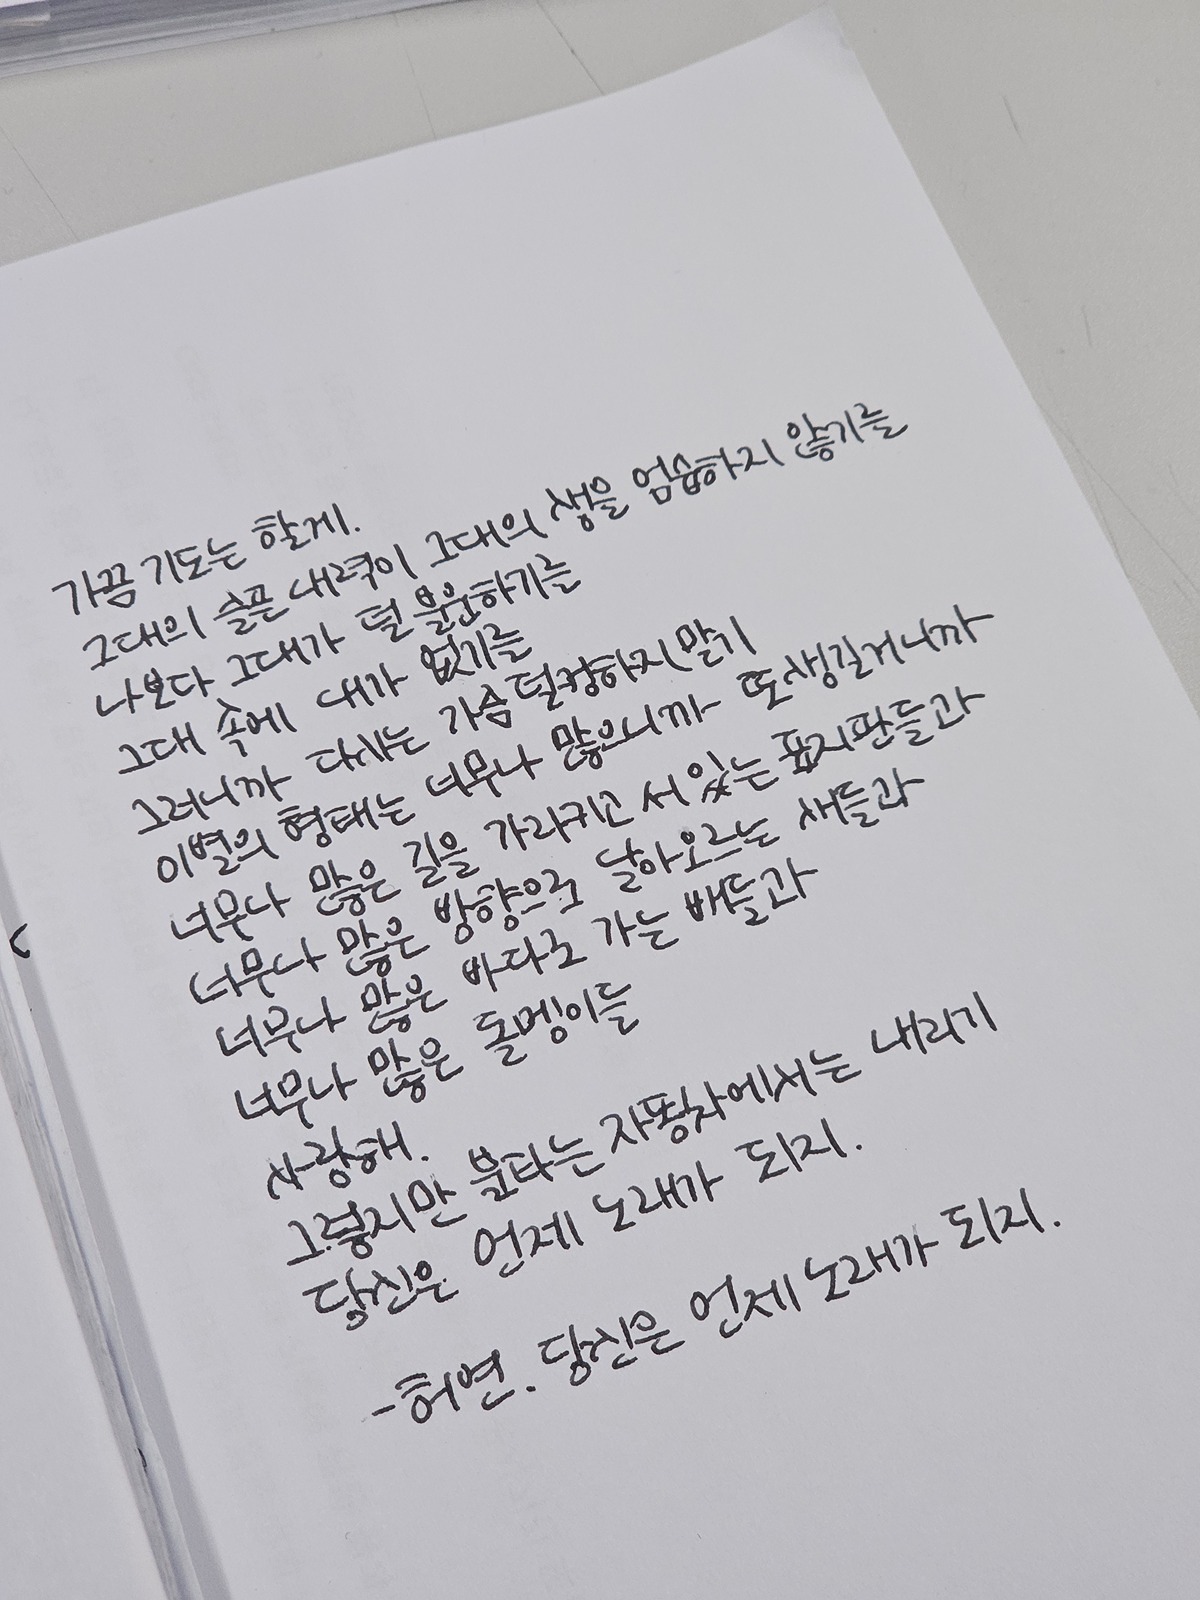 가끔 기도는 할게.
그대의 슬픈 내력이 그대의 생을 엄습하지 않기를
나보다 그대가 덜 불운하기를
그대 속에 내가 없기를
그러니까 다시는 가슴 덜컹하지 말기
이별의 형태는 너무나 많으니까 또 생길거니까
너무나 많은 길을 가리키고 서 있는 표지판들과
너무나 많은 방향으로 날아오르는 새들과
너무나 많은 바다로 가는 배들과
너무나 많은 돌멩이들
사랑해.
그렇지만 불타는 자동차에서는 내리기
당신은 언제 노래가 되지.
-허연. 당신은 언제 노래가 되지.